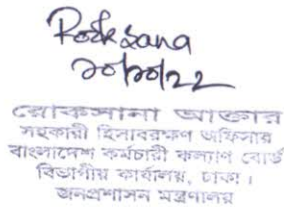 Roksana
২০/১০/২২
রোকসানা আক্তার
সহকারী হিসাবরক্ষণ অফিসার
বাংলাদেশ কর্মচারী কল্যাণ বোর্ড
বিভাগীয় কার্যালয়, ঢাকা।
জনপ্রশাসন মন্ত্রণালয়